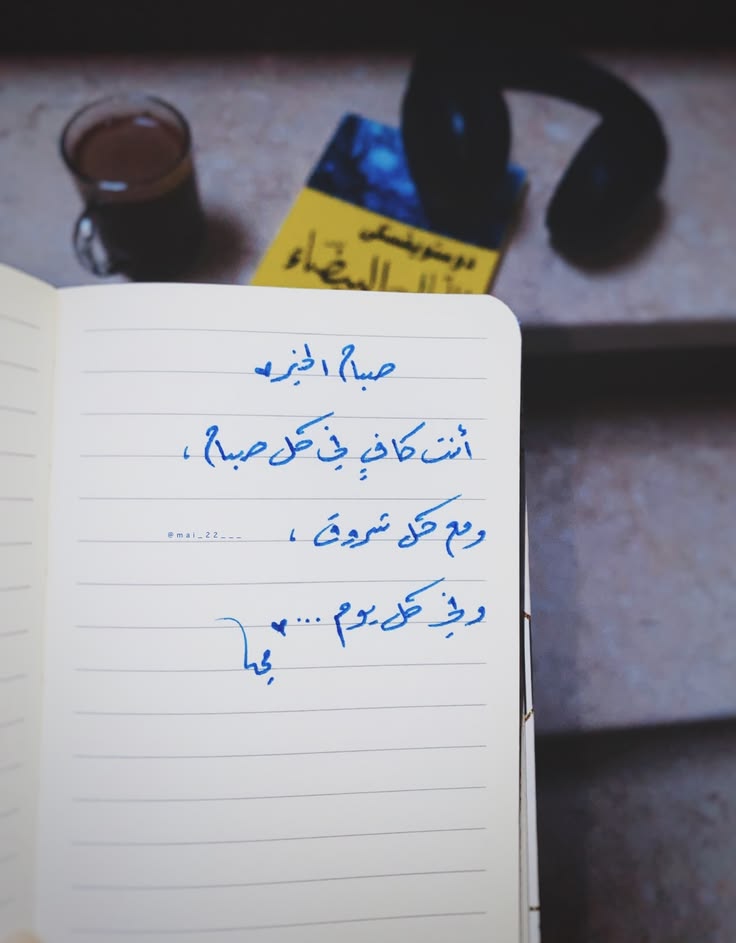 دوستويفسكي
الليالي البيضاء
صباح الخير♥
أنت كافٍ في كل صباح ،
ومع كل شروق ،
@mai_22___
وفي كل يوم ...♥
مي